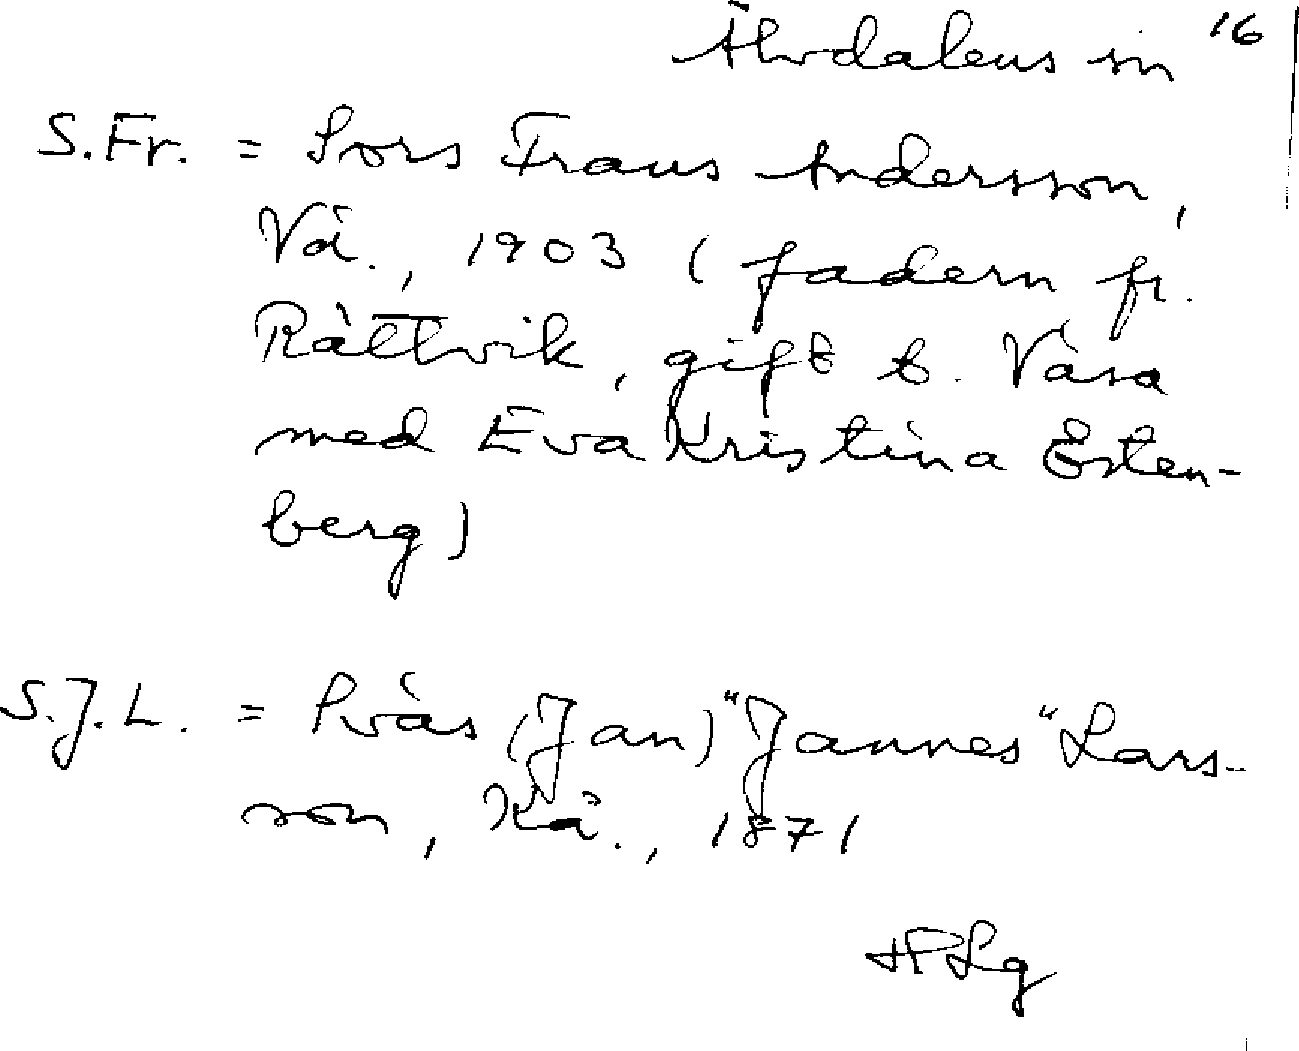 Älvdalens sn 16
S.Fr. = Sors Frans Andersson,
Vå., 1903 (fadern fr.
Rättvik, gift t. Våsa
med Eva Kristina Esten-
berg)
S.J.L. = Svås (Jan) "Jannes" Lars-
son, Kå., 1871
HPLg